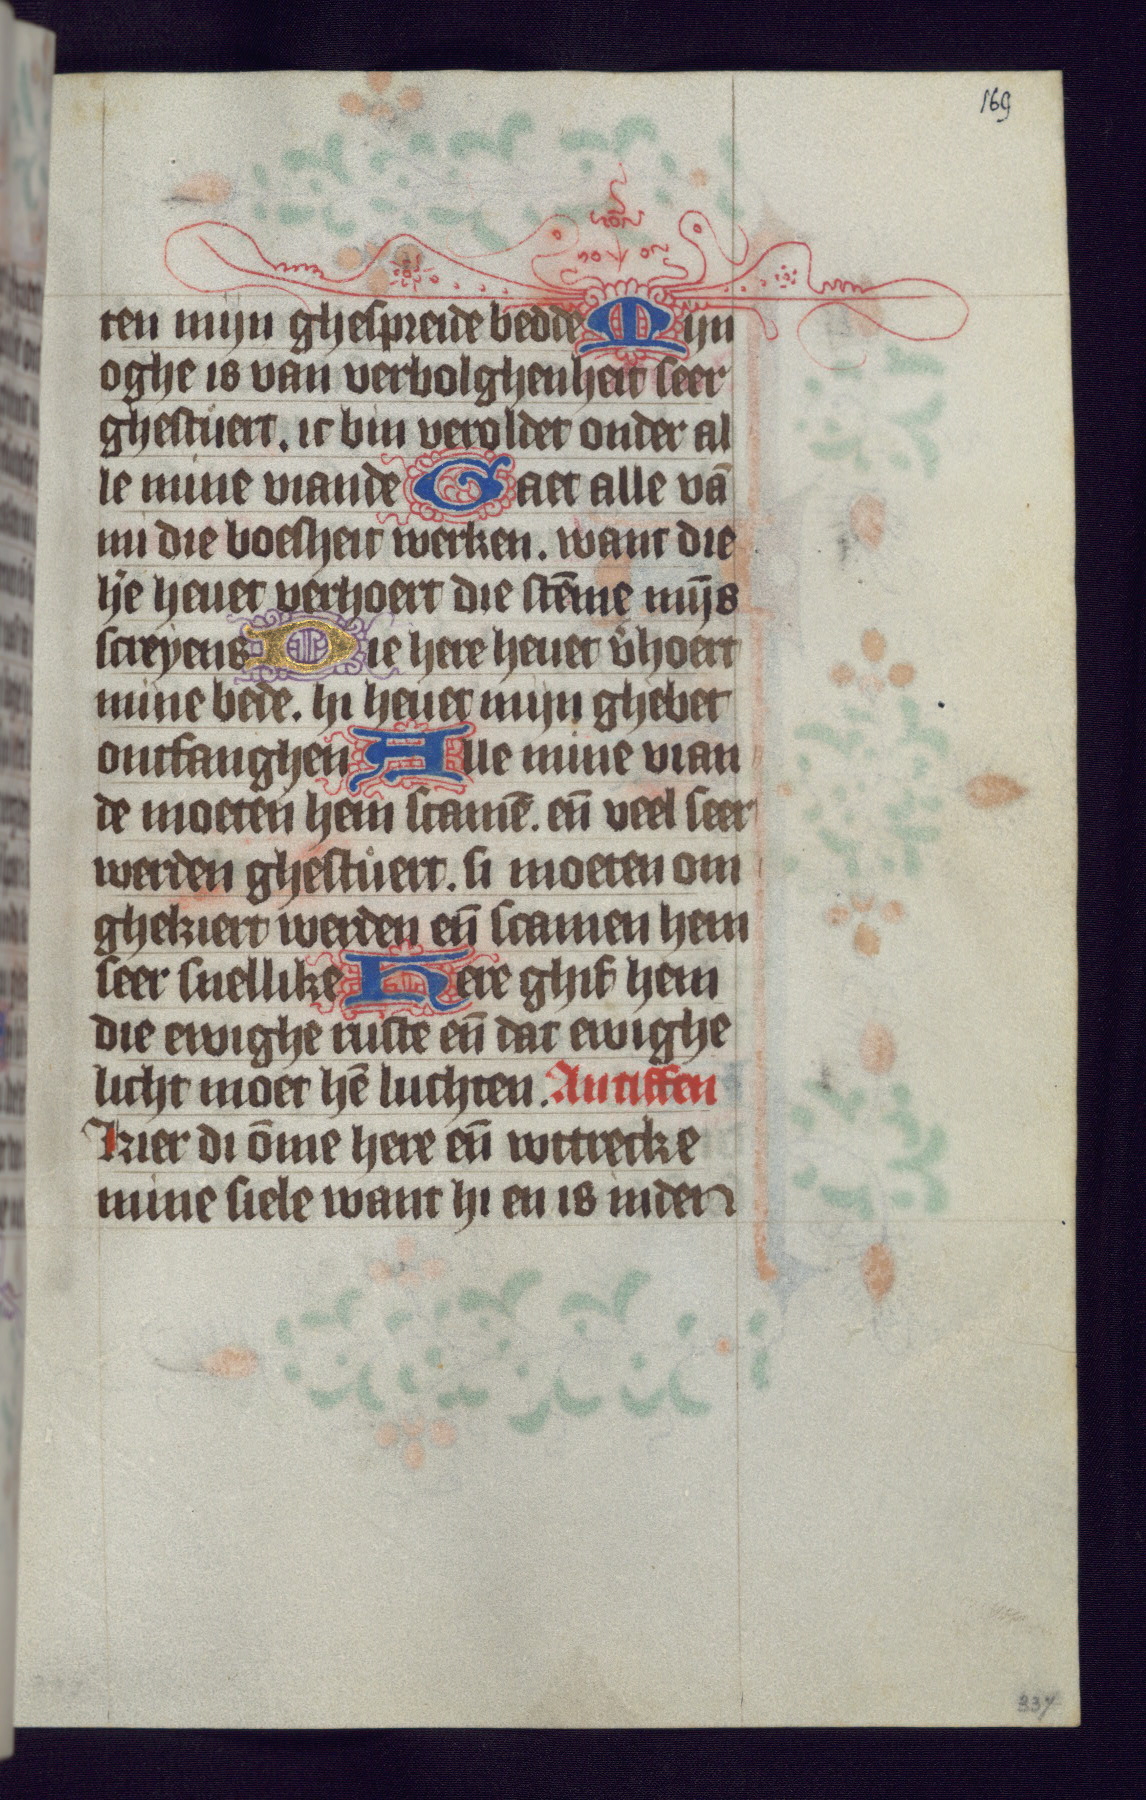 169
ten mijn ghespreide bedde Mijn
oghe is van verbolghenheit seer
ghestuert. ic bin veroldet onder al
le mine viande Gaet alle vā
mi die boesheit werken. want die
h̄e heuet verhoert die stēme mījs
screyens Die here heuet v̉hoert
mine bede. hi heuet mijn ghebet
ontfanghen Alle mine vian
de moeten hem scamē. en̄ veel seer
werden ghestuert. si moeten om
ghekiert werden en̄ scamen hem
seer snellike Here ghif hem
die ewighe ruste en̄ dat ewighe
licht moet hē luchten. Antiffen
Kier di ōme here en̄ wttrecke
mine siele want hi en is inder
337